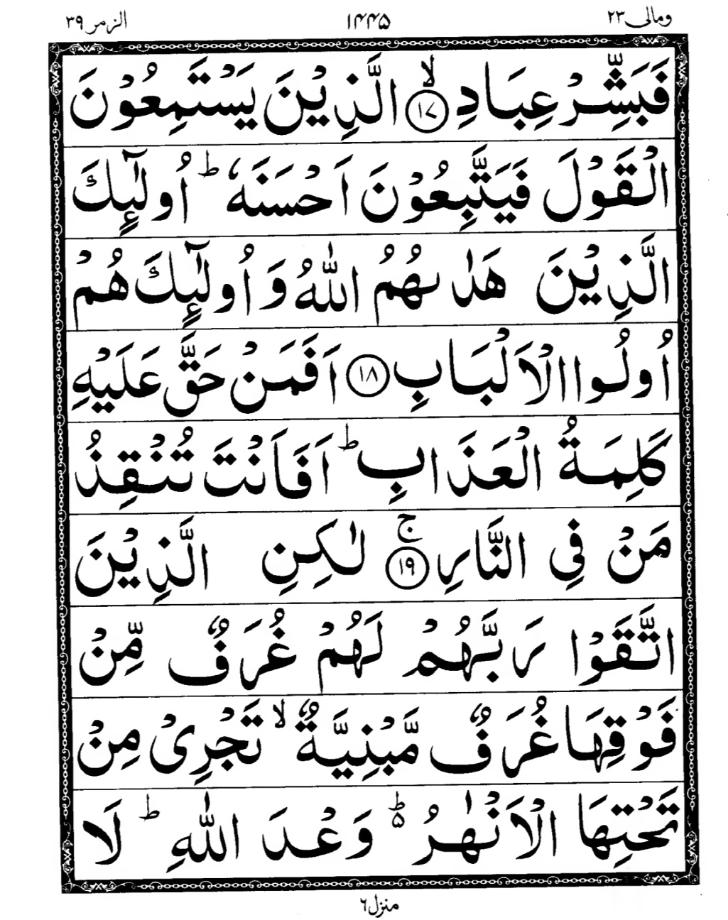 ومالی ۲۳ ۱۴۴۵ الزمر ۳۹
فَبَشِّرْ عِبَادِ ﴿۱۷﴾ۙ الَّذِيْنَ يَسْتَمِعُوْنَ
الْقَوْلَ فَيَتَّبِعُوْنَ اَحْسَنَهٗ ؕ اُولٰٓئِكَ
الَّذِيْنَ هَدٰىهُمُ اللّٰهُ وَاُولٰٓئِكَ هُمْ
اُولُوا الْاَلْبَابِ ﴿۱۸﴾ اَفَمَنْ حَقَّ عَلَيْهِ
كَلِمَةُ الْعَذَابِ ؕ اَفَاَنْتَ تُنْقِذُ
مَنْ فِي النَّارِ ﴿۱۹﴾ۚ لٰكِنِ الَّذِيْنَ
اتَّقَوْا رَبَّهُمْ لَهُمْ غُرَفٌ مِّنْ
فَوْقِهَا غُرَفٌ مَّبْنِيَّةٌ ۙ تَجْرِيْ مِنْ
تَحْتِهَا الْاَنْهٰرُ ؕ۬ وَعْدَ اللّٰهِ ؕ لَا
منزل ۶